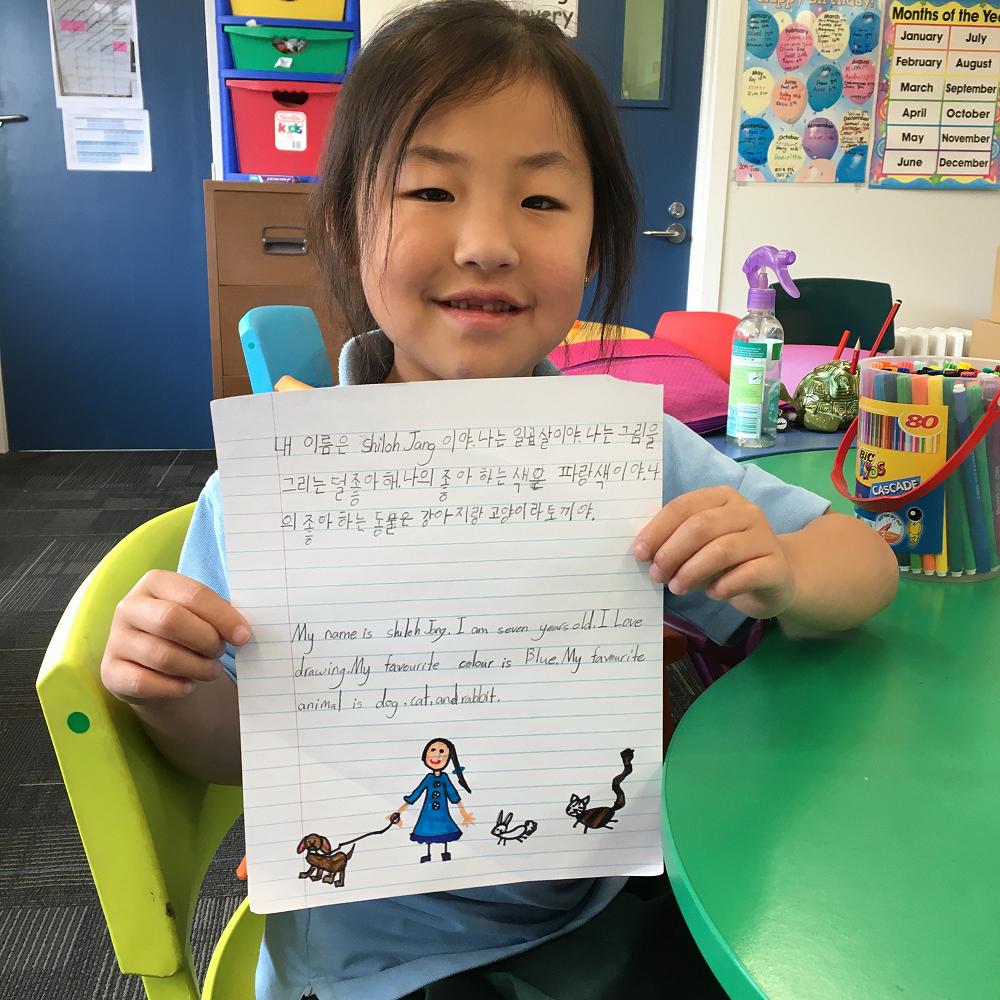 Happy Birthday!
Months of the Yea
January July
February August
March September
April October
May November
June December
kids
80
BIC
KIDS
CASCADE
내 이름은 shiloh Jang 이야.나는 일곱살이야.나는 그림을
그리는 덜좋아해.나의 좋아하는 색은 파랑색이야.나
의 좋아하는 동물은 강아지랑 고양이라토끼야.
My name is shiloh Jang. I am seven years old. I Love
drawing. My favourite colour is Blue. My favourite
animal is dog, cat, and rabbit.